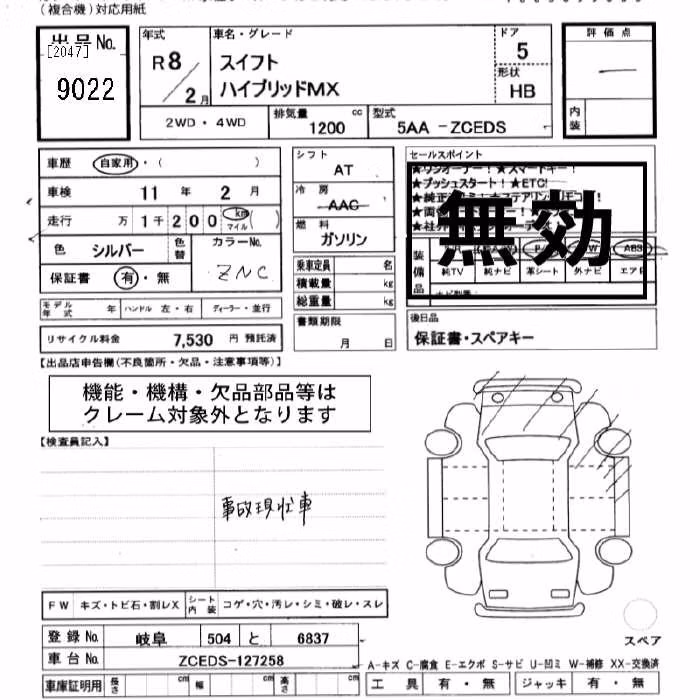 (複合機)対応用紙
出品No.
[2047]
9022
年式
R8/2月
車名・グレード
スイフト
ハイブリッドMX
ドア
5
形状
HB
2WD・4WD
排気量 1200 cc
型式 5AA-ZCEDS
評価点
内装
車歴 自家用・( )
車検 11年 2月
走行 万 1千200 km マイル( )
色 シルバー 色替 カラーNo. ZNC
保証書 有・無
モデル年式 年 ハンドル 左・右 ディーラー・並行
リサイクル料金 7,530 円 預託済
シフト AT
冷房 AAC
燃料 ガソリン
乗車定員 名
積載量 kg
総重量 kg
書類期限 月 日
セールスポイント
★ワンオーナー!★スマートキー!
★プッシュスタート!★ETC!
無効
装備品
純TV 純ナビ 革シート 外ナビ エアB
後日品
保証書・スペアキー
【出品店申告欄(不良箇所・欠品・注意事項等)】
機能・機構・欠品部品等は
クレーム対象外となります
【検査員記入】
事故現状車
FW キズ・トビ石・割レX シート内装 コゲ・穴・汚レ・シミ・破レ・スレ
登録No. 岐阜 504 と 6837
車台No. ZCEDS-127258
車庫証明用 長さ cm 幅 cm 高さ cm
スペア
A-キズ C-腐食 E-エクボ S-サビ U-凹ミ W-補修 XX-交換済
工具 有・無 ジャッキ 有・無